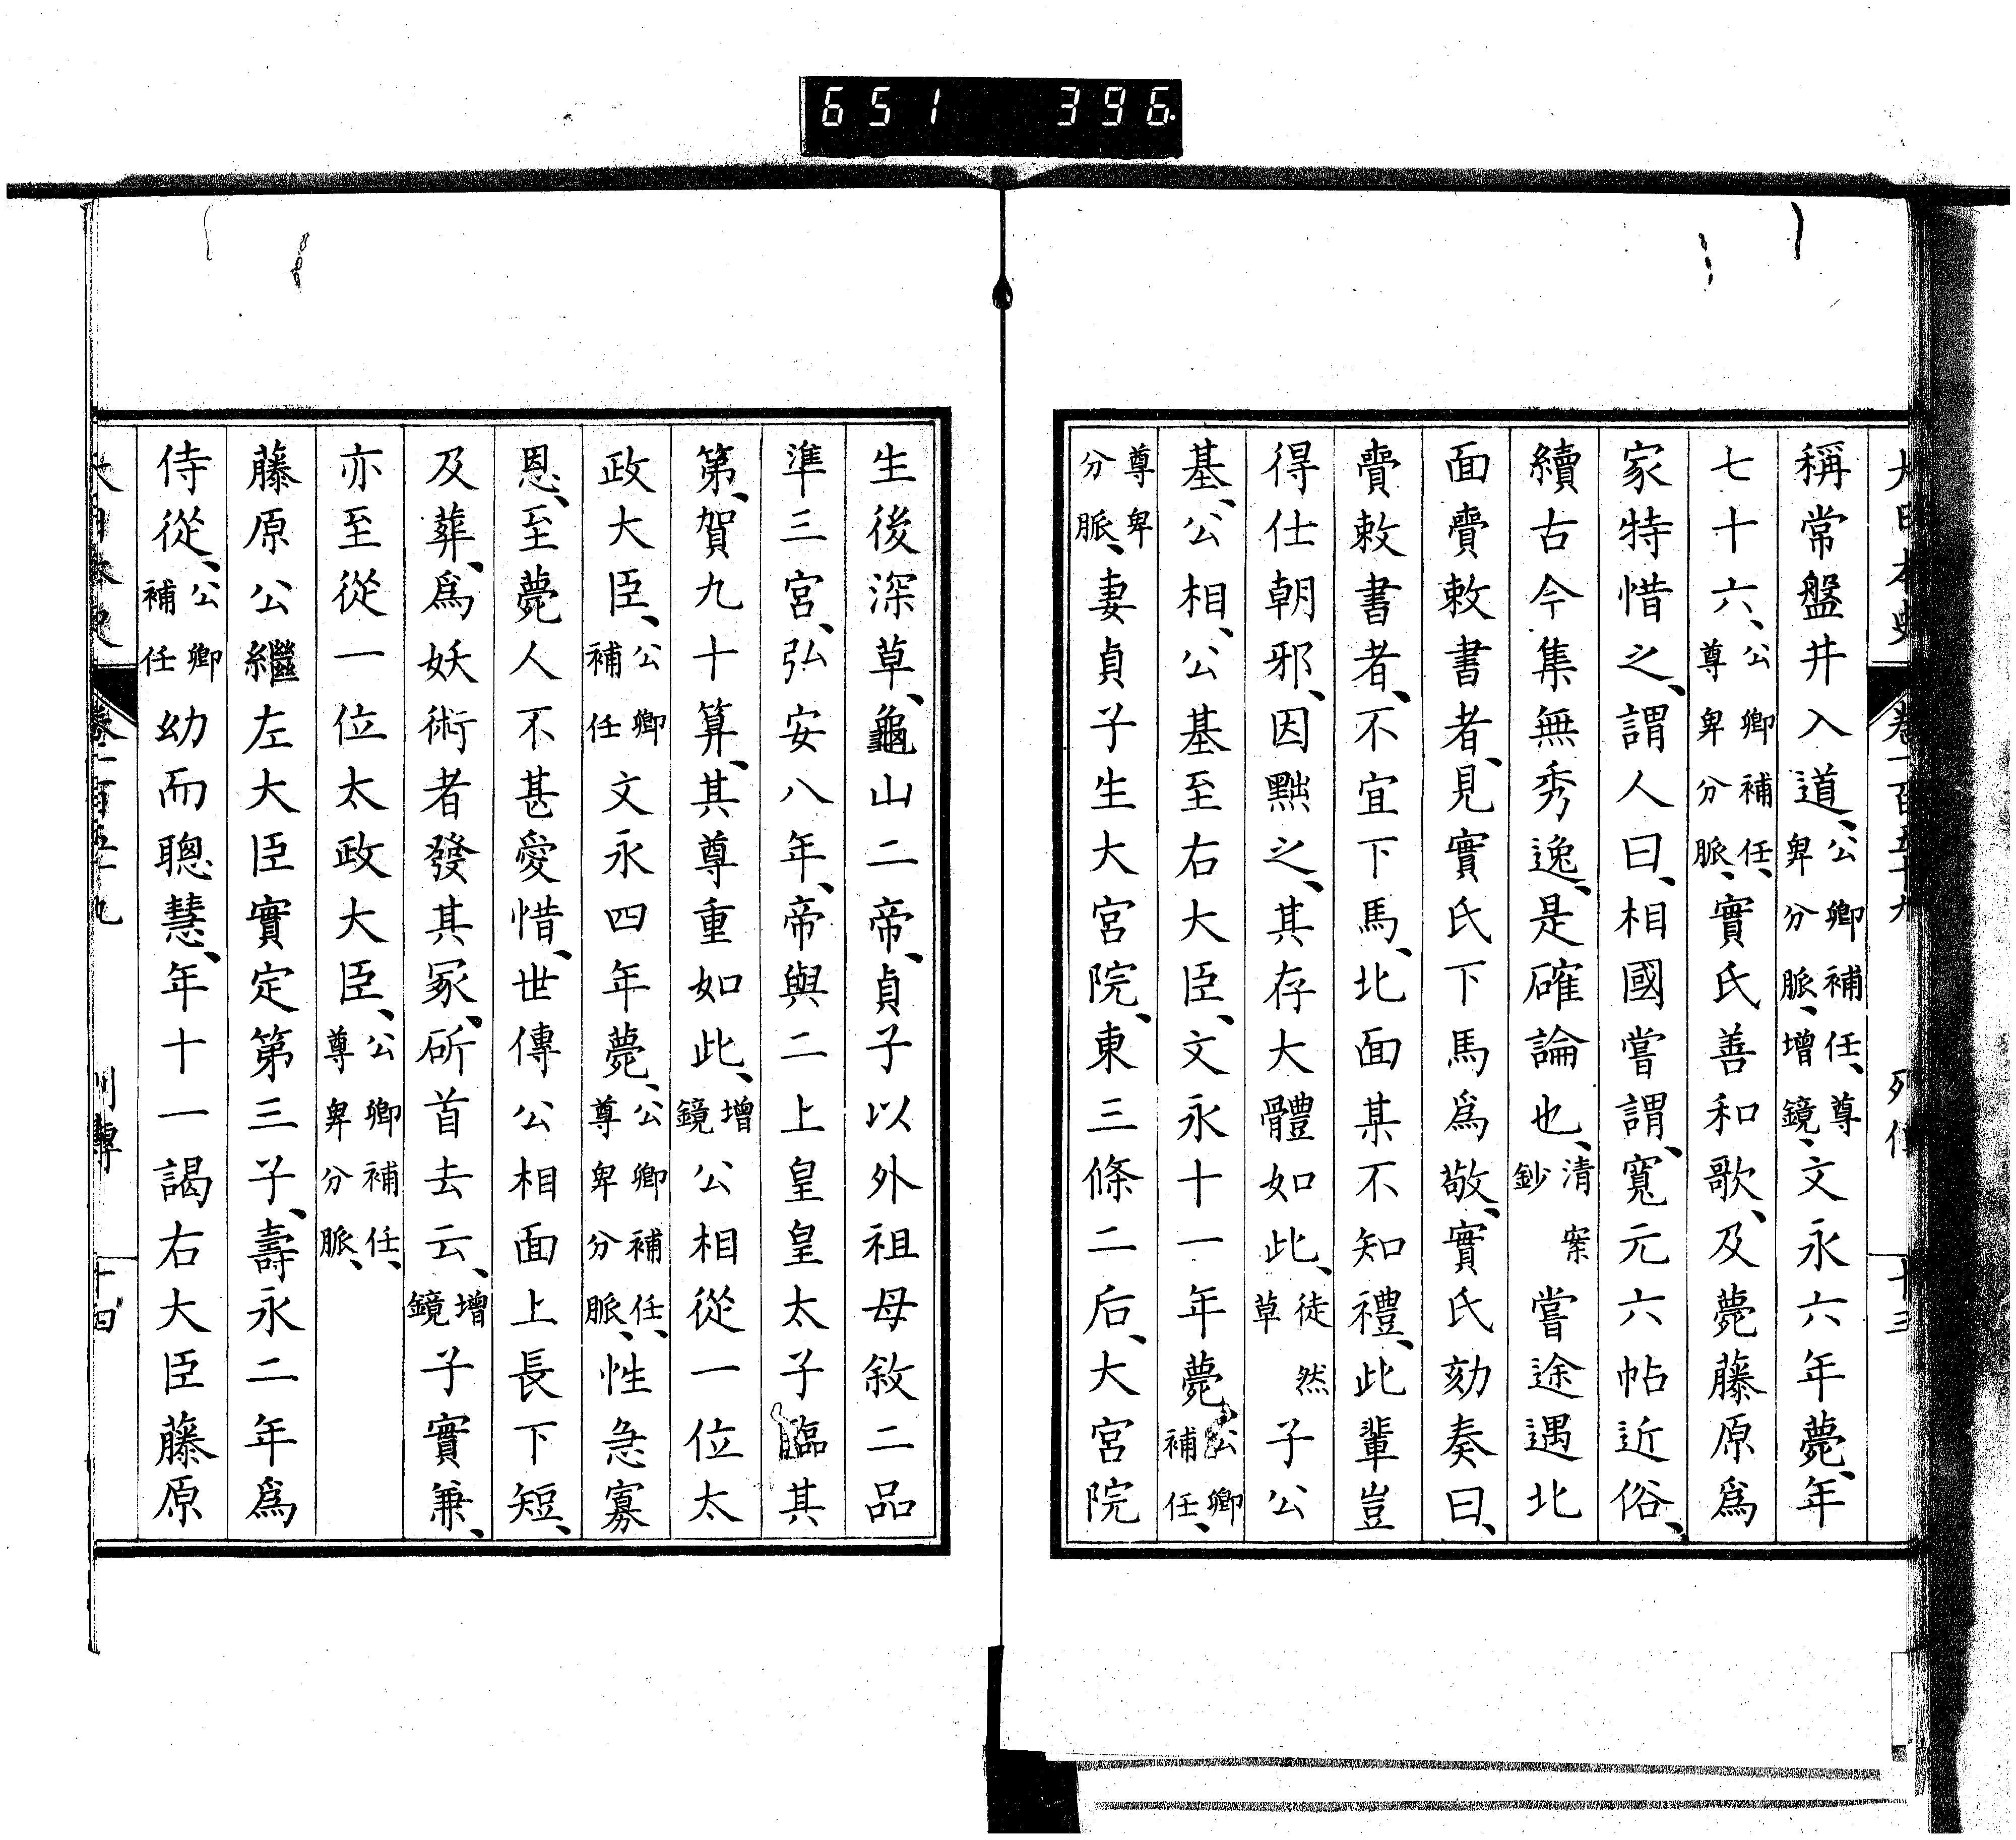 651 396
大日本史 卷一百五十九 列傳 十三
稱常盤井入道、公卿補任、尊卑分脈、增鏡、文永六年薨、年
七十六、公卿補任、尊卑分脈、實氏善和歌、及薨藤原爲
家特惜之、謂人曰、相國嘗謂、寬元六帖近俗、
續古今集無秀逸、是確論也、清案鈔嘗途遇北
面齎敕書者、見實氏下馬爲敬、實氏劾奏曰、
齎敕書者、不宜下馬、北面某不知禮、此輩豈
得仕朝邪、因黜之、其存大體如此、徒然草子公
基、公相、公基至右大臣、文永十一年薨、公卿補任、
尊卑分脈、妻貞子生大宮院、東三條二后、大宮院
生後深草、龜山二帝、貞子以外祖母敘二品
準三宮、弘安八年、帝與二上皇皇太子臨其
第、賀九十算、其尊重如此、增鏡公相從一位太
政大臣、公卿補任文永四年薨、公卿補任、尊卑分脈、性急寡
恩、至薨人不甚愛惜、世傳公相面上長下短、
及葬、爲妖術者發其冢、斫首去云、增鏡子實兼、
亦至從一位太政大臣、公卿補任、尊卑分脈、
藤原公繼左大臣實定第三子、壽永二年爲
侍從、公卿補任幼而聰慧、年十一謁右大臣藤原
大日本史 卷一百五十九 列傳 十四